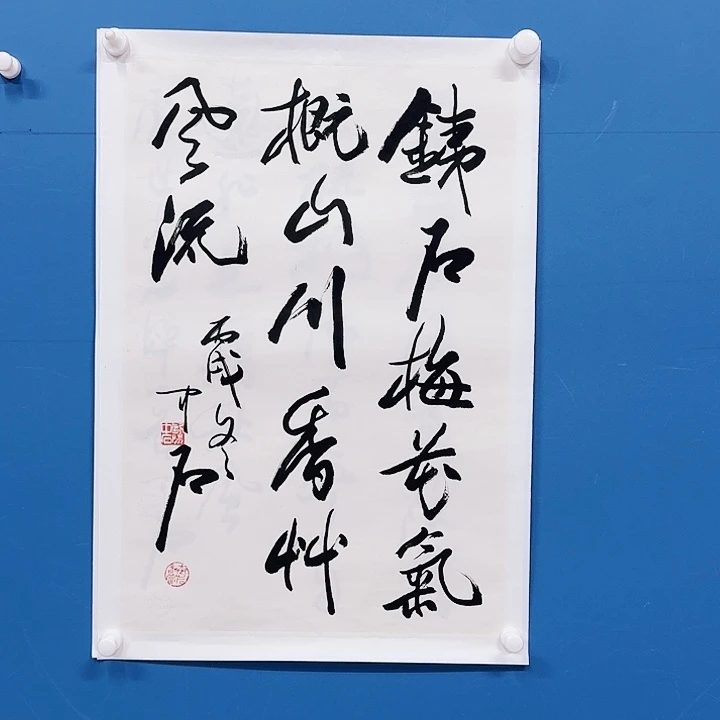 銕石梅花氣
概山川香艸
風流
丙戌冬
中石